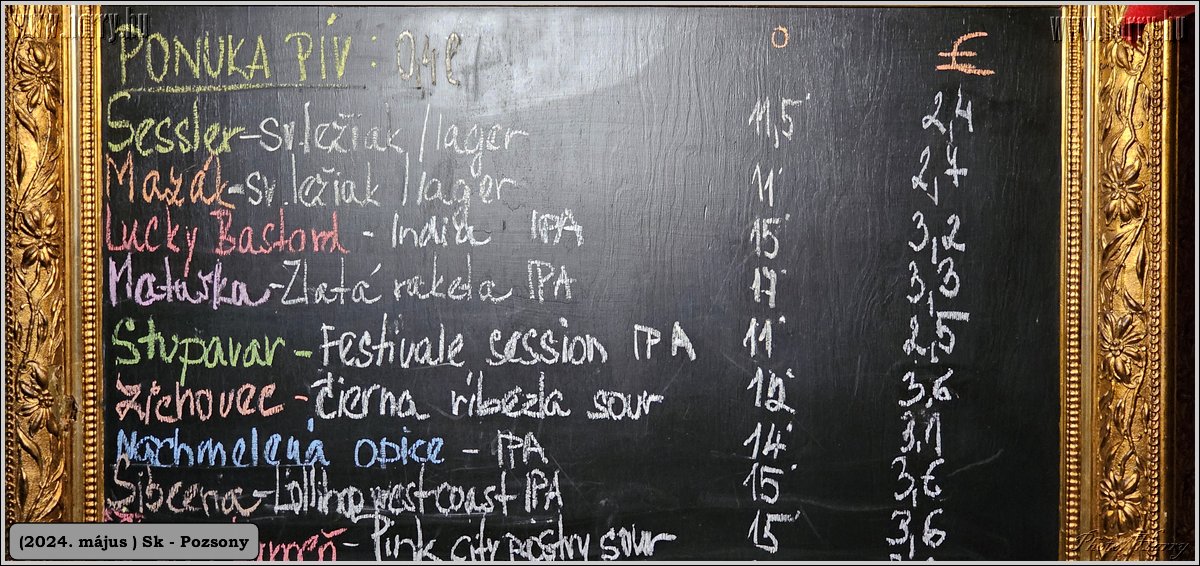 www.harry.hu www.harry.hu
PONUKA PÍV: 0,4l ° €
Sessler-sv.ležiak/lager 11,5° 2,4
Mazák-sv.ležiak/lager 11° 2,7
Lucky Bastard - India IPA 15° 3,2
Matuška-Zlatá raketa IPA 17° 3,3
Stupavar - Festivale session IPA 11° 2,5
Zichovec - čierna ribezla sour 12° 3,6
Nachmelená opice - IPA 14° 3,1
Sibeeria-Lollihop westcoast IPA 15° 3,6
- Pink city pastry sour 15° 3,6
(2024. május ) Sk - Pozsony